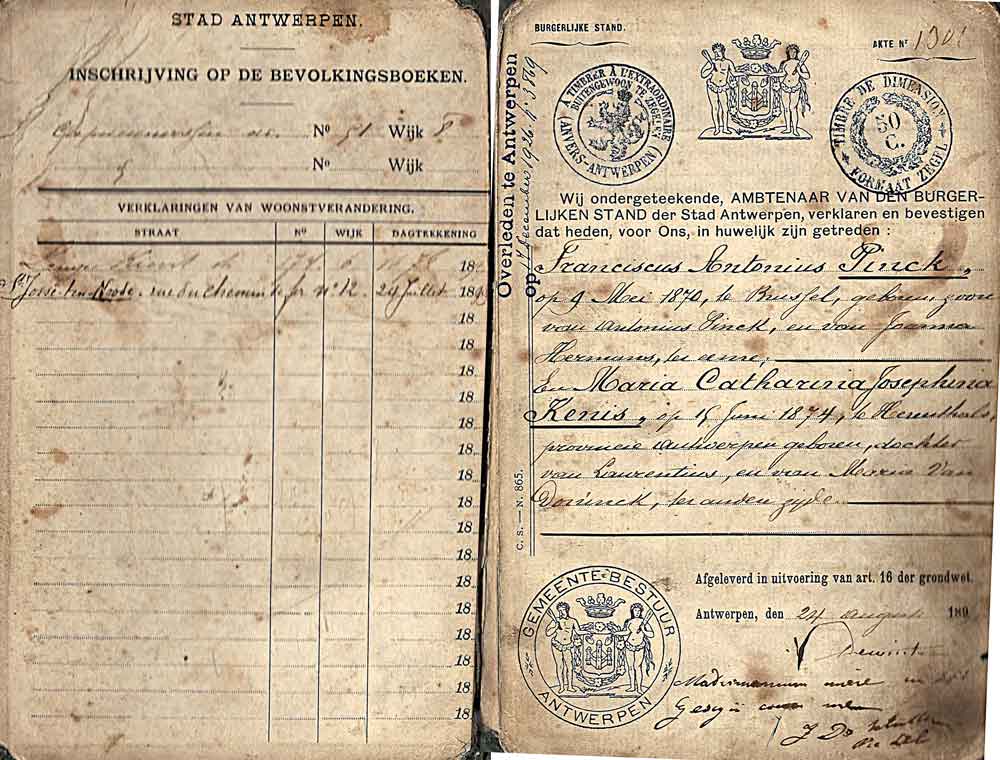 STAD ANTWERPEN.
INSCHRIJVING OP DE BEVOLKINGSBOEKEN.
Nº 51 Wijk 8
Nº Wijk
VERKLARINGEN VAN WOONSTVERANDERING.
STRAAT Nº WIJK DAGTEEKENING
18
St Josse-ten-Noode, rue du chemin de fer nº 12 24 Juillet 18
18
18
18
18
18
18
18
18
18
18
18
18
18
18
18
18
Overleden te Antwerpen
op 17 december 1926
C. S. — N. 865.
BURGERLIJKE STAND.
AKTE Nº 1301
A TIMBRER À L'EXTRAORDINAIRE
BUITENGEWOON TE ZEGELEN
(ANVERS-ANTWERPEN)
TIMBRE DE DIMENSION
50
C.
FORMAAT ZEGEL
Wij ondergeteekende, AMBTENAAR VAN DEN BURGER-
LIJKEN STAND der Stad Antwerpen, verklaren en bevestigen
dat heden, voor Ons, in huwelijk zijn getreden :
Franciscus Antonius Pinck,
op 9 Mei 1870, te Brussel, geboren, zoon
van Antonius Pinck, en van Joanna
Hermans, ter eene;
En Maria Catharina Josephina
Kenis, op 15 Juni 1874, te Herenthals,
provincie Antwerpen geboren, dochter
van Laurentius, en van Maria Van
ter anderen zijde.
Afgeleverd in uitvoering van art. 16 der grondwet.
Antwerpen, den 24 augusti 189
GEMEENTE-BESTUUR
ANTWERPEN